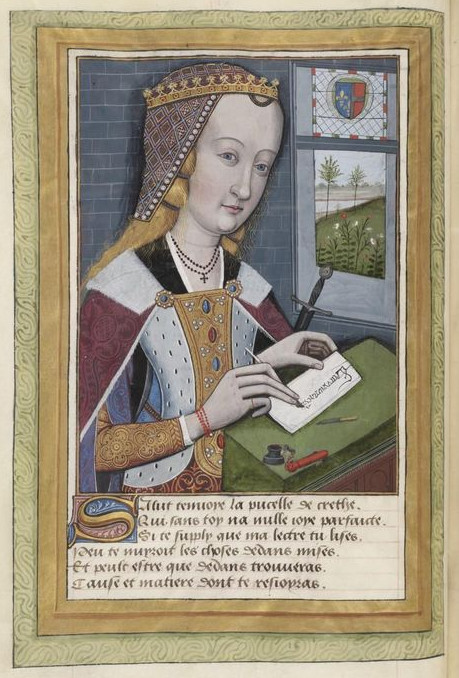 Salut tenuoye la pucelle de crethe.
Qui sans toy na nulle ioye parfaicte.
Si te supply que ma lectre tu lises.
Peu te nuyront les choses dedans mises.
Et peult estre que dedans trouueras.
Cause et matiere dont te resioyras.